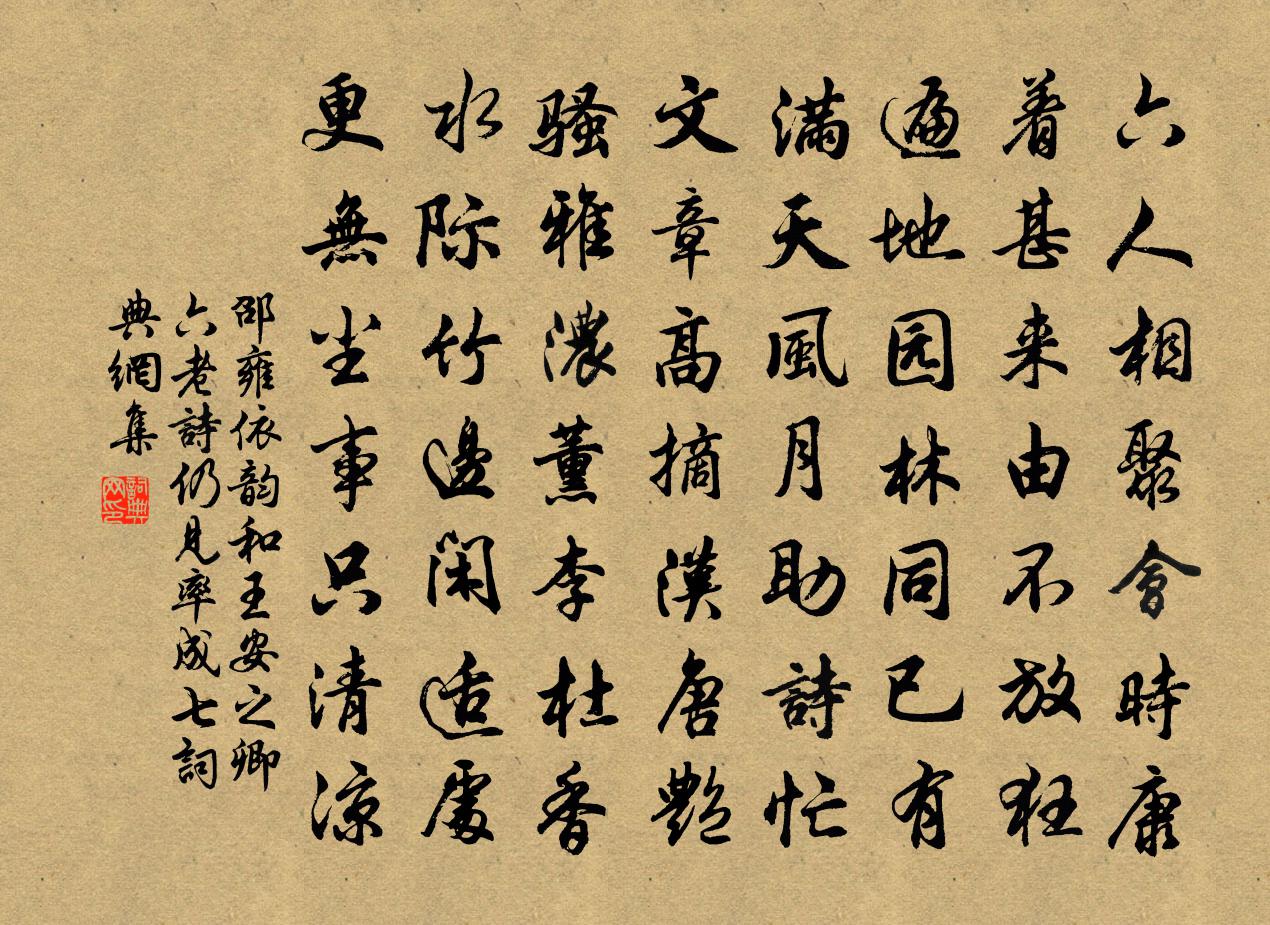 六人相聚會時康
着甚来由不放狂
遍地园林同已有
滿天風月助詩忙
文章高摘漢唐艷
騷雅濃薰李杜香
水际竹邊闲适處
更無尘事只清凉
邵雍依韵和王安之卿
六老詩仍見率成七詞
典網集
詞典
网印